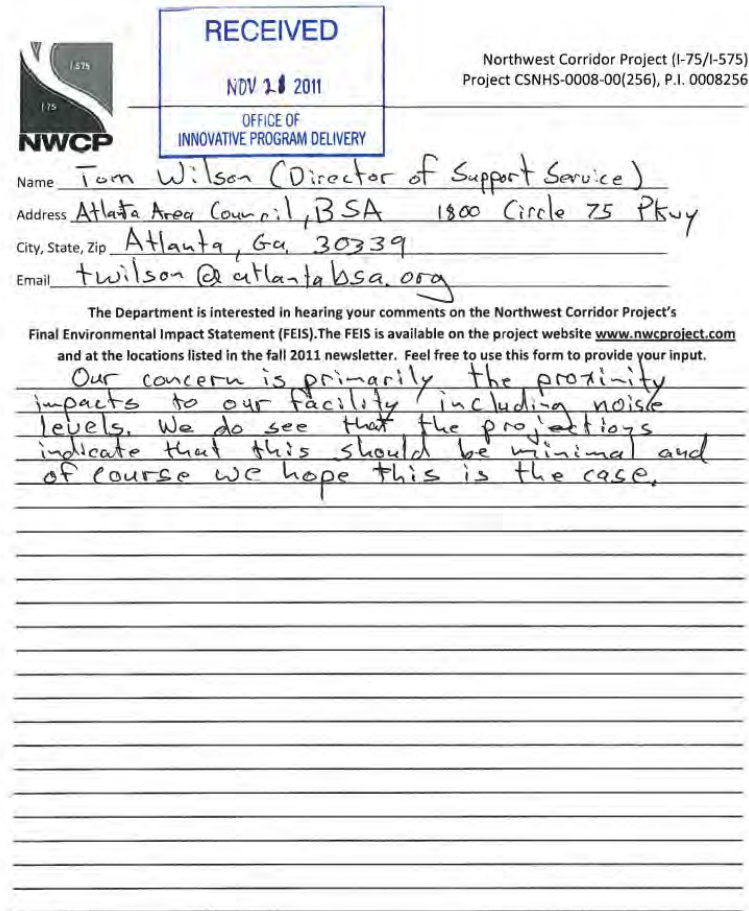 RECEIVED
NOV 28 2011
OFFICE OF
INNOVATIVE PROGRAM DELIVERY
I-575
I-75
NWCP
Northwest Corridor Project (I-75/I-575)
Project CSNHS-0008-00(256), P.I. 0008256
Name Tom Wilson (Director of Support Service)
Address Atlata Area Council, BSA 1800 Circle 75 Pkwy
City, State, Zip Atlanta, Ga. 30339
Email twilson@atlantabsa.org
The Department is interested in hearing your comments on the Northwest Corridor Project's
Final Environmental Impact Statement (FEIS).The FEIS is available on the project website www.nwcproject.com
and at the locations listed in the fall 2011 newsletter. Feel free to use this form to provide your input.
Our concern is primarily the proximity
impacts to our facility including noise
levels. We do see that the projections
indicate that this should be minimal and
of course we hope this is the case.